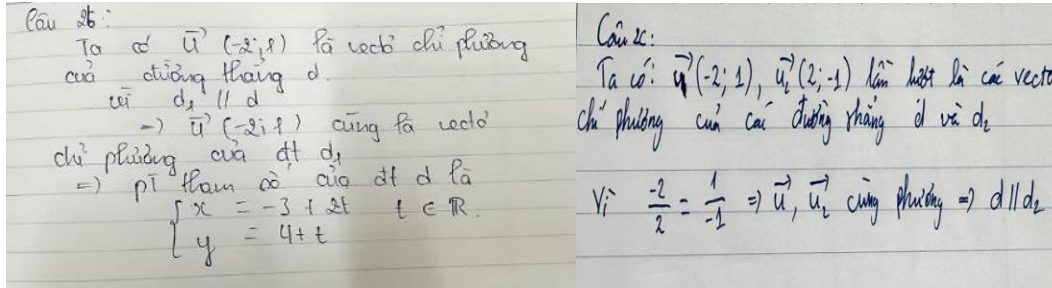 Câu 2b:
Ta có u⃗ (-2; 1) là vectơ chỉ phương
của đường thẳng d.
vì d₁ // d
=) u⃗ (-2; 1) cũng là vectơ
chỉ phương của đt d₁
=) pt tham số của đt d là
{ x = -3 + 2t t ∈ ℝ.
y = 4 + t
Câu 2c:
Ta có: u⃗ (-2; 1), u₂⃗ (2; -1) lần lượt là các vectơ
chỉ phương của các đường thẳng d và d₂
Vì -2/2 = 1/-1 =) u⃗, u₂⃗ cùng phương =) d // d₂